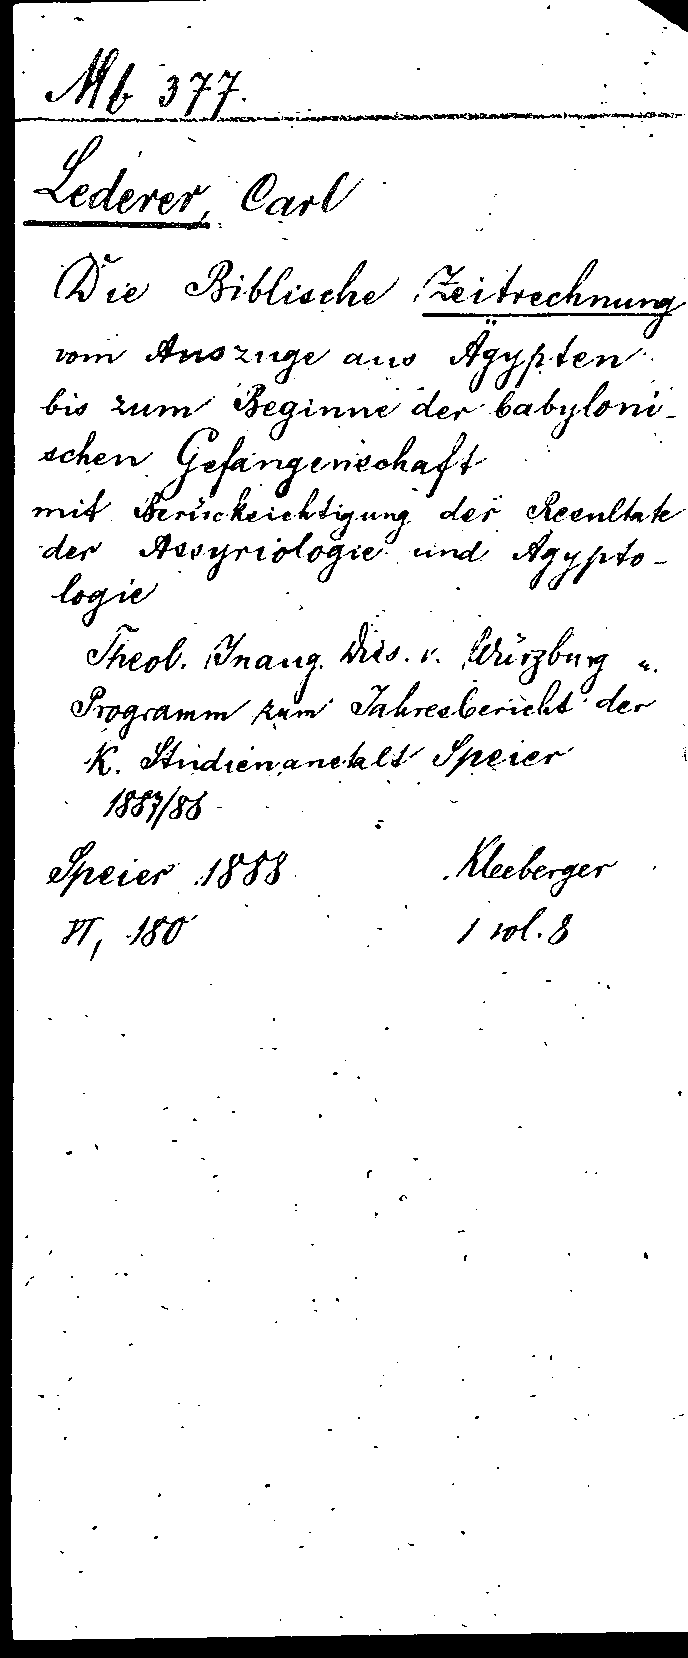 Mb 377.
Lederer, Carl
Die Biblische Zeitrechnung
vom Auszuge aus Ägypten
bis zum Beginne der babyloni-
schen Gefangenschaft
mit Berücksichtigung der Resultate
der Assyriologie und Ägypto-
logie
Theol. Inaug. Diss. v. Würzburg u.
Programm zum Jahresbericht der
K. Studienanstalt Speier
1887/88
Speier 1888 Kleeberger
VI, 180 1 vol. 8